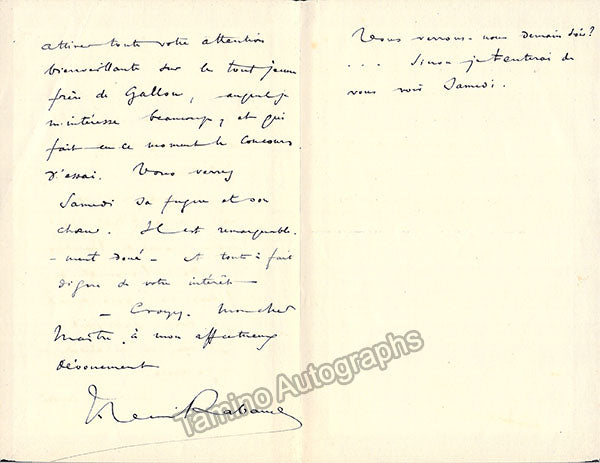 attirer toute votre attention
bienveillante sur le tout jeune
frère de Gallon, auquel je
m'intéresse beaucoup, et qui
fait en ce moment le Concours
d'essai. Vous verrez
Samedi sa fugue et son
chœur. Il est remarquable-
-ment doué - et tout à fait
digne de votre intérêt
- Croyez, mon cher
Maître, à mon affectueux
dévouement
Henri Rabaud
Vous verrons-nous demain soir?
... Sinon je tenterai de
vous voir Samedi.
Tamino Autographs